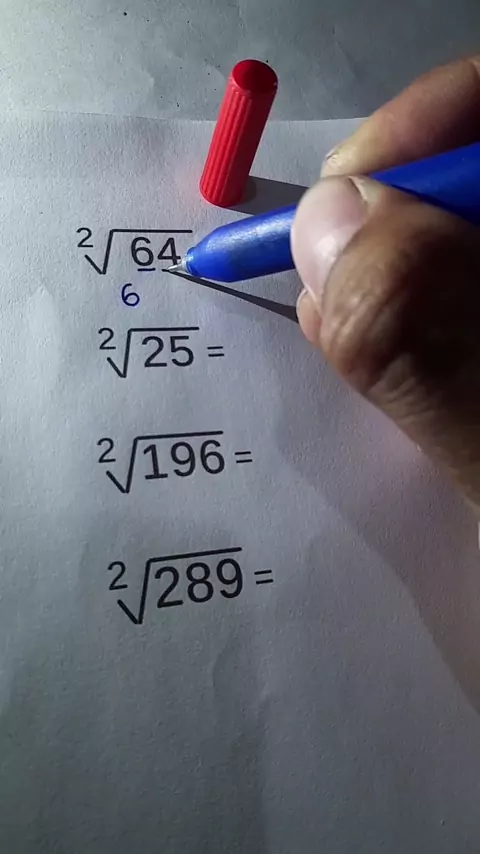 ²√64
6
²√25 =
²√196 =
²√289 =